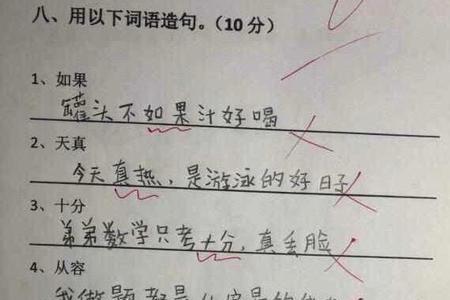 八、用以下词语造句。（10 分）
1、如果
罐头不如果汁好喝
2、天真
今天真热，是游泳的好日子
3、十分
弟弟数学只考十分，真丢脸
4、从容
我做题都是从